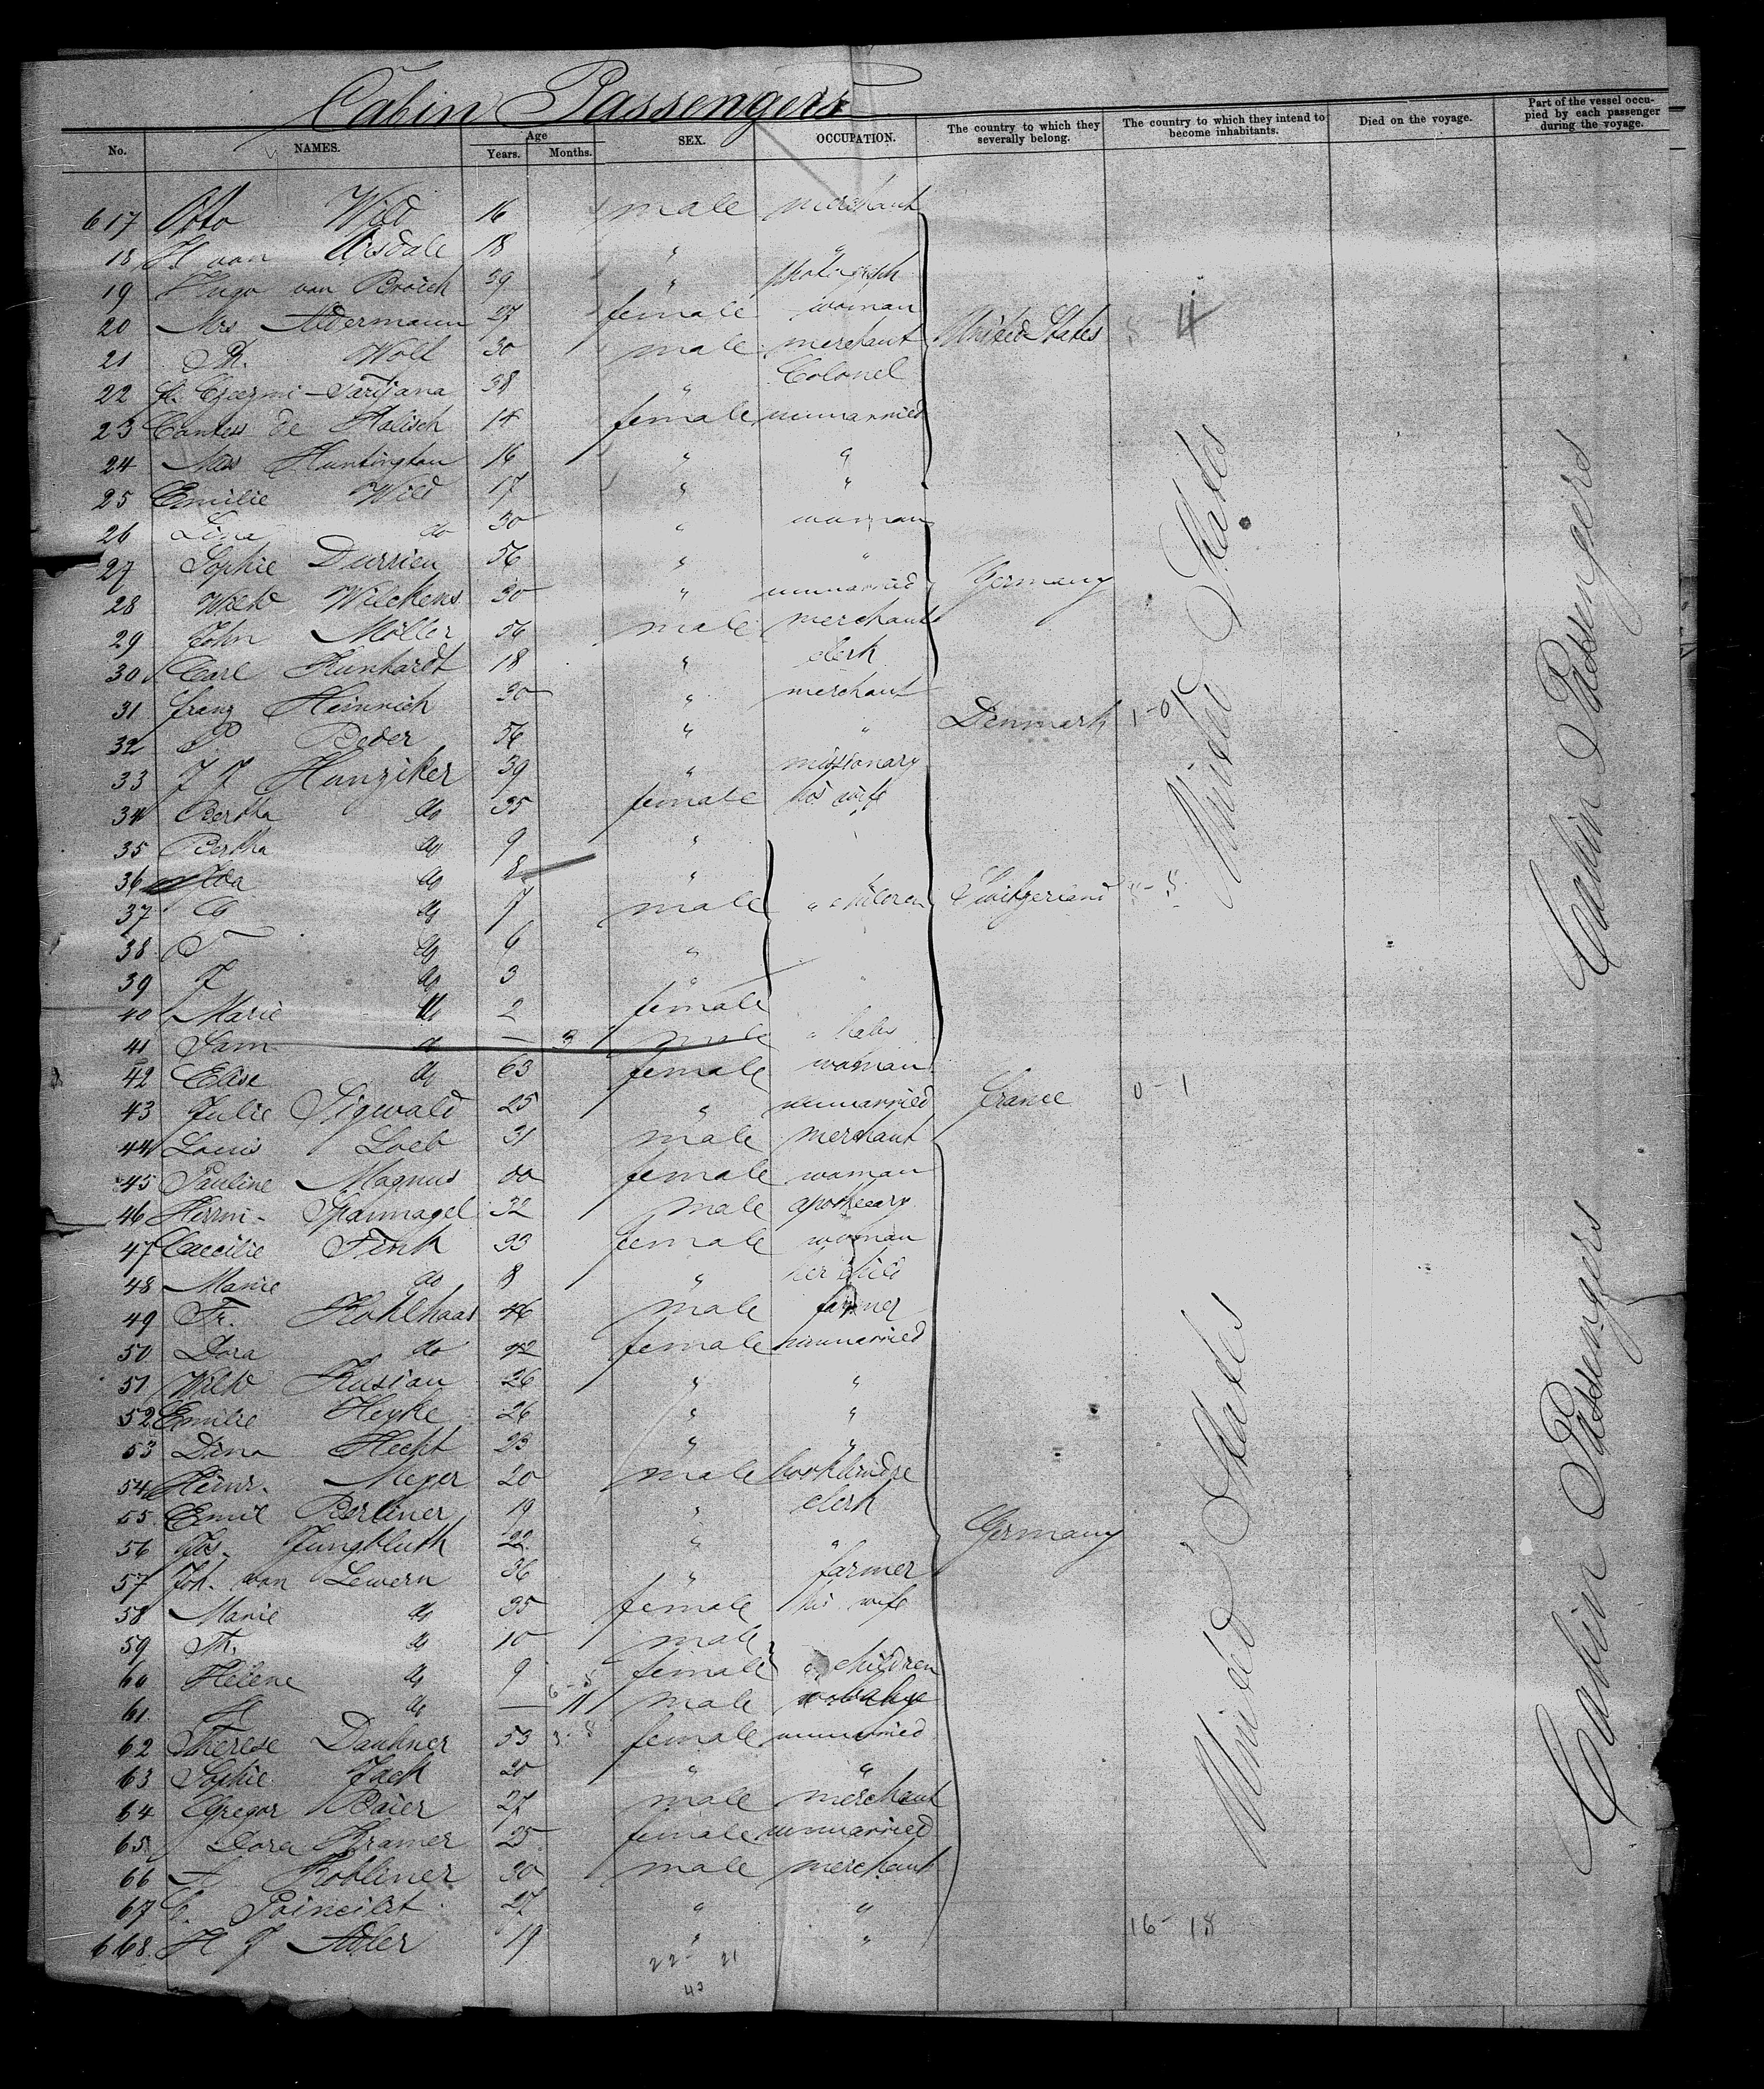 Cabin Passengers
No. NAMES. Age Years. Months. SEX. OCCUPATION. The country to which they severally belong. The country to which they intend to become inhabitants. Died on the voyage. Part of the vessel occupied by each passenger during the voyage.
617 Otto Wild 16 male merchant
18 H van Arsdale 18 " "
19 Hugo van Broich 39 "
20 Mrs Aldermann 27 female woman
21 Wolf 30 male merchant United States 4
22 38 " Colonel
23 de Kalisch 14 female unmarried
24 Miss Huntington 16 " "
25 Emilie Wild 17 " "
26 Line do 30 " woman
27 Sophie Durrieu 56 " "
28 Wilh Wilckens 30 " unmarried Germany
29 John Möller 56 male merchant
30 Carl Kunhardt 18 " clerk
31 Franz Heinrich 30 " merchant
32 P Beder 56 " " Denmark 1-0
33 J J Hunziker 39 " missionary
34 Bertha do 35 female his wife
35 Bertha do 9 "
36 Ida do 8 "
37 do 7 male " children Switzerland
38 do 6 "
39 J do 3 " "
40 Marie do 2 female
41 Sam do — 3 male "
42 Elise do 63 female woman
43 Julie Sigwald 25 " unmarried France 0-1
44 Louis Loeb 31 male merchant
45 Pauline Magnus female woman
46 Herm. Spannagel 32 male apothecary
47 Caecilie Fink 33 female woman
48 Marie do 8 " her child
49 Fr. Kohlhaas 46 male farmer
50 Dora do 42 female unmarried
51 Wilh Kusian 26 " "
52 Emilie Heyke 26 " "
53 Dina Hecht 23 " "
54 Heinr. Meyer 20 male
55 Emil Berliner 19 " clerk
56 Jos. Jungbluth 22 " " Germany
57 Joh. von Lewern 36 " farmer
58 Marie do 35 female his wife
59 Th. do 10 male
60 Helene do 9 female " children
61 do — 11 male
62 Therese Daubner 53 female unmarried
63 Sophie Jack 20 " "
64 Gregor Baier 27 male merchant
65 Dora Kramer 25 female unmarried
66 Kobliner 30 male merchant
67 C. Poincilit 27 " "
668 H J Adler 19 " "
16-18
22 21
43
United States
United States
Cabin Passengers
Cabin Passengers